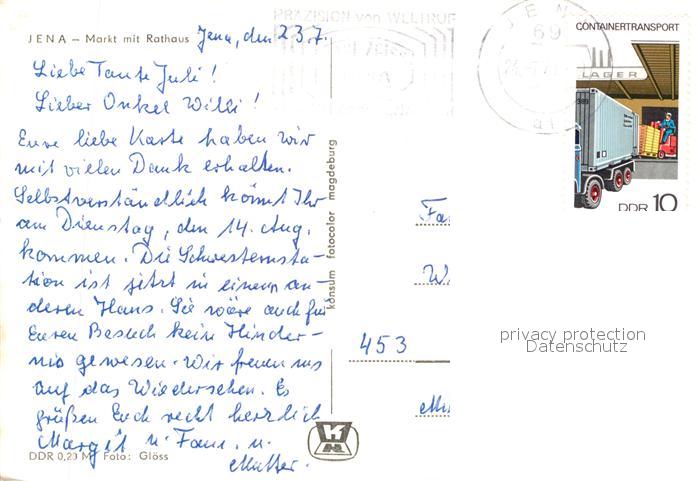 JENA – Markt mit Rathaus
Jena, den 23.7.
Liebe Tante Juli!
Lieber Onkel Willi!
Eure liebe Karte haben wir
mit vielen Dank erhalten.
Selbstverständlich könnt Ihr
am Dienstag, den 14. Aug.
kommen. Die Schwesternsta-
tion ist jetzt in einem an-
deren Haus. Sie wäre auch für
Euren Besuch kein Hinder-
nis gewesen. Wir freuen uns
auf das Wiedersehen. Es
grüßen Euch recht herzlich
Margit u. Fam. u.
Mutter.
DDR 0,20 M Foto: Glöss
konsum fotocolor magdeburg
PRÄZISION von WELTRUF
JENA
69
CONTAINERTRANSPORT
LAGER
DDR 10
Fa
W
453
privacy protection
Datenschutz